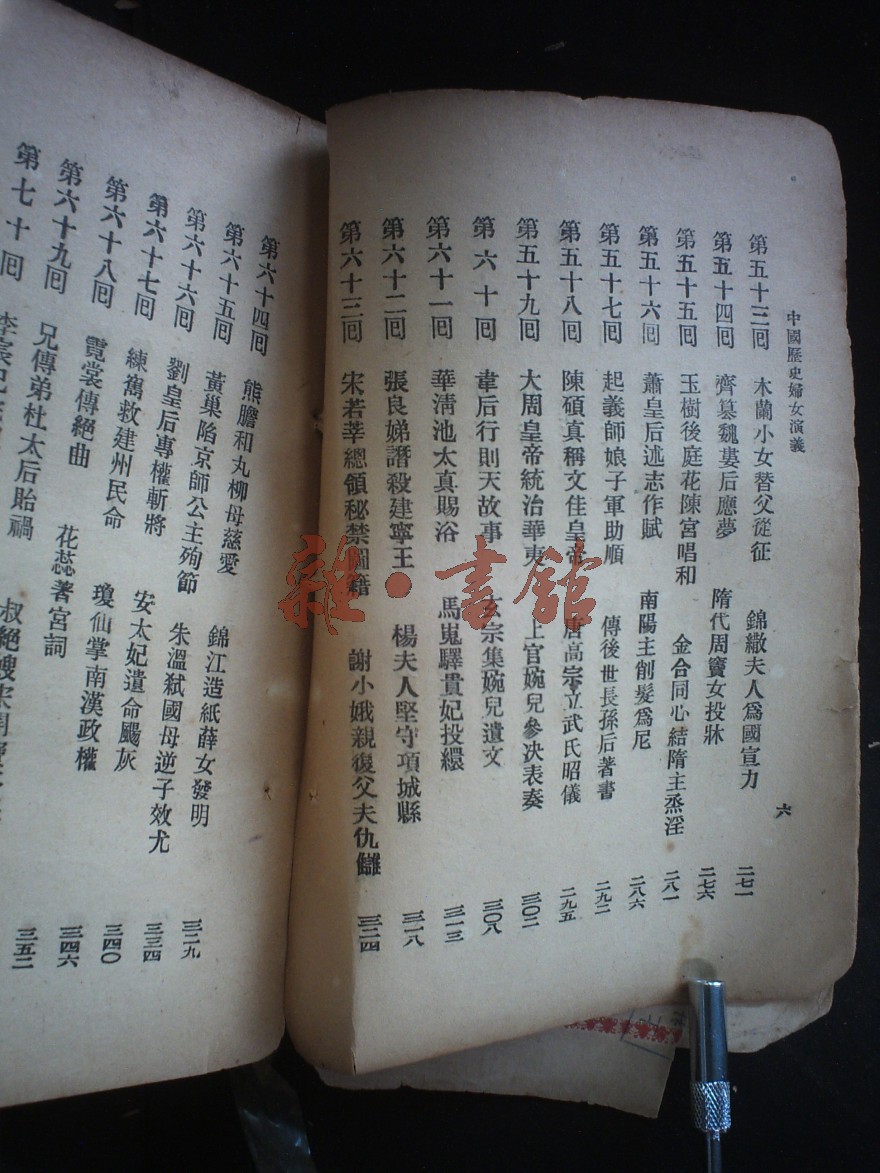 中國歷史婦女演義
六
第五十三回 木蘭小女替父從征 錦繖夫人爲國宣力 二七一
第五十四回 齊篡魏婁后應夢 隋代周竇女投牀 二七六
第五十五回 玉樹後庭花陳宮唱和 金合同心結隋主烝淫 二八一
第五十六回 蕭皇后述志作賦 南陽主削髮爲尼 二八六
第五十七回 起義師娘子軍助順 傳後世長孫后著書 二九二
第五十八回 陳碩真稱文佳皇帝 唐高宗立武氏昭儀 二九五
第五十九回 大周皇帝統治華夷 上官婉兒參決表奏 三〇二
第六十回 韋后行則天故事 玄宗集婉兒遺文 三〇八
第六十一回 華清池太真賜浴 馬嵬驛貴妃投繯 三一三
第六十二回 張良娣譖殺建寧王 楊夫人堅守項城縣 三一八
第六十三回 宋若莘總領秘禁圖籍 謝小娥親復父夫仇讎 三二四
第六十四回 熊膽和丸柳母慈愛 錦江造紙薛女發明 三二九
第六十五回 黃巢陷京師公主殉節 朱溫弒國母逆子效尤 三三四
第六十六回 劉皇后專權斬將 安太妃遺命颺灰 三四〇
第六十七回 練雋救建州民命 瓊仙掌南漢政權 三四六
第六十八回 霓裳傳絕曲 花蕊著宮詞 三五二
第六十九回 兄傳弟杜太后貽禍 叔絕嫂宋開
第七十回 李宸妃
雜·書館